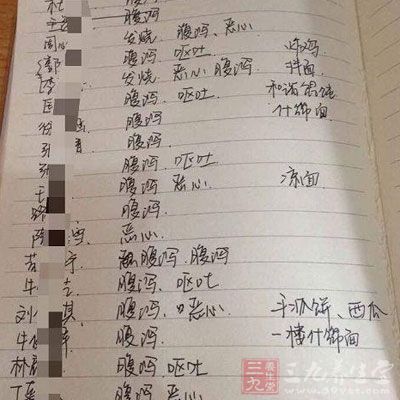 杜 腹泻
腹泻
周 发烧 腹泻、恶心
郭 腹泻 呕吐 炸鸡
李 发烧 恶心 腹泻 拌面
腹泻 呕吐
徐 腹泻 什锦面
张 腹泻
张 腹泻 呕吐
王 腹泻 恶心 凉面
腹泻
陈 恶心
苏 宁 腹泻 腹泻
牛 腹泻、呕吐
刘 琪 腹泻、恶心 手抓饼、西瓜
牛 腹泻 一楼什锦面
林 腹泻 呕吐
丁 腹泻 恶心
三九养生堂
www.39yst.com